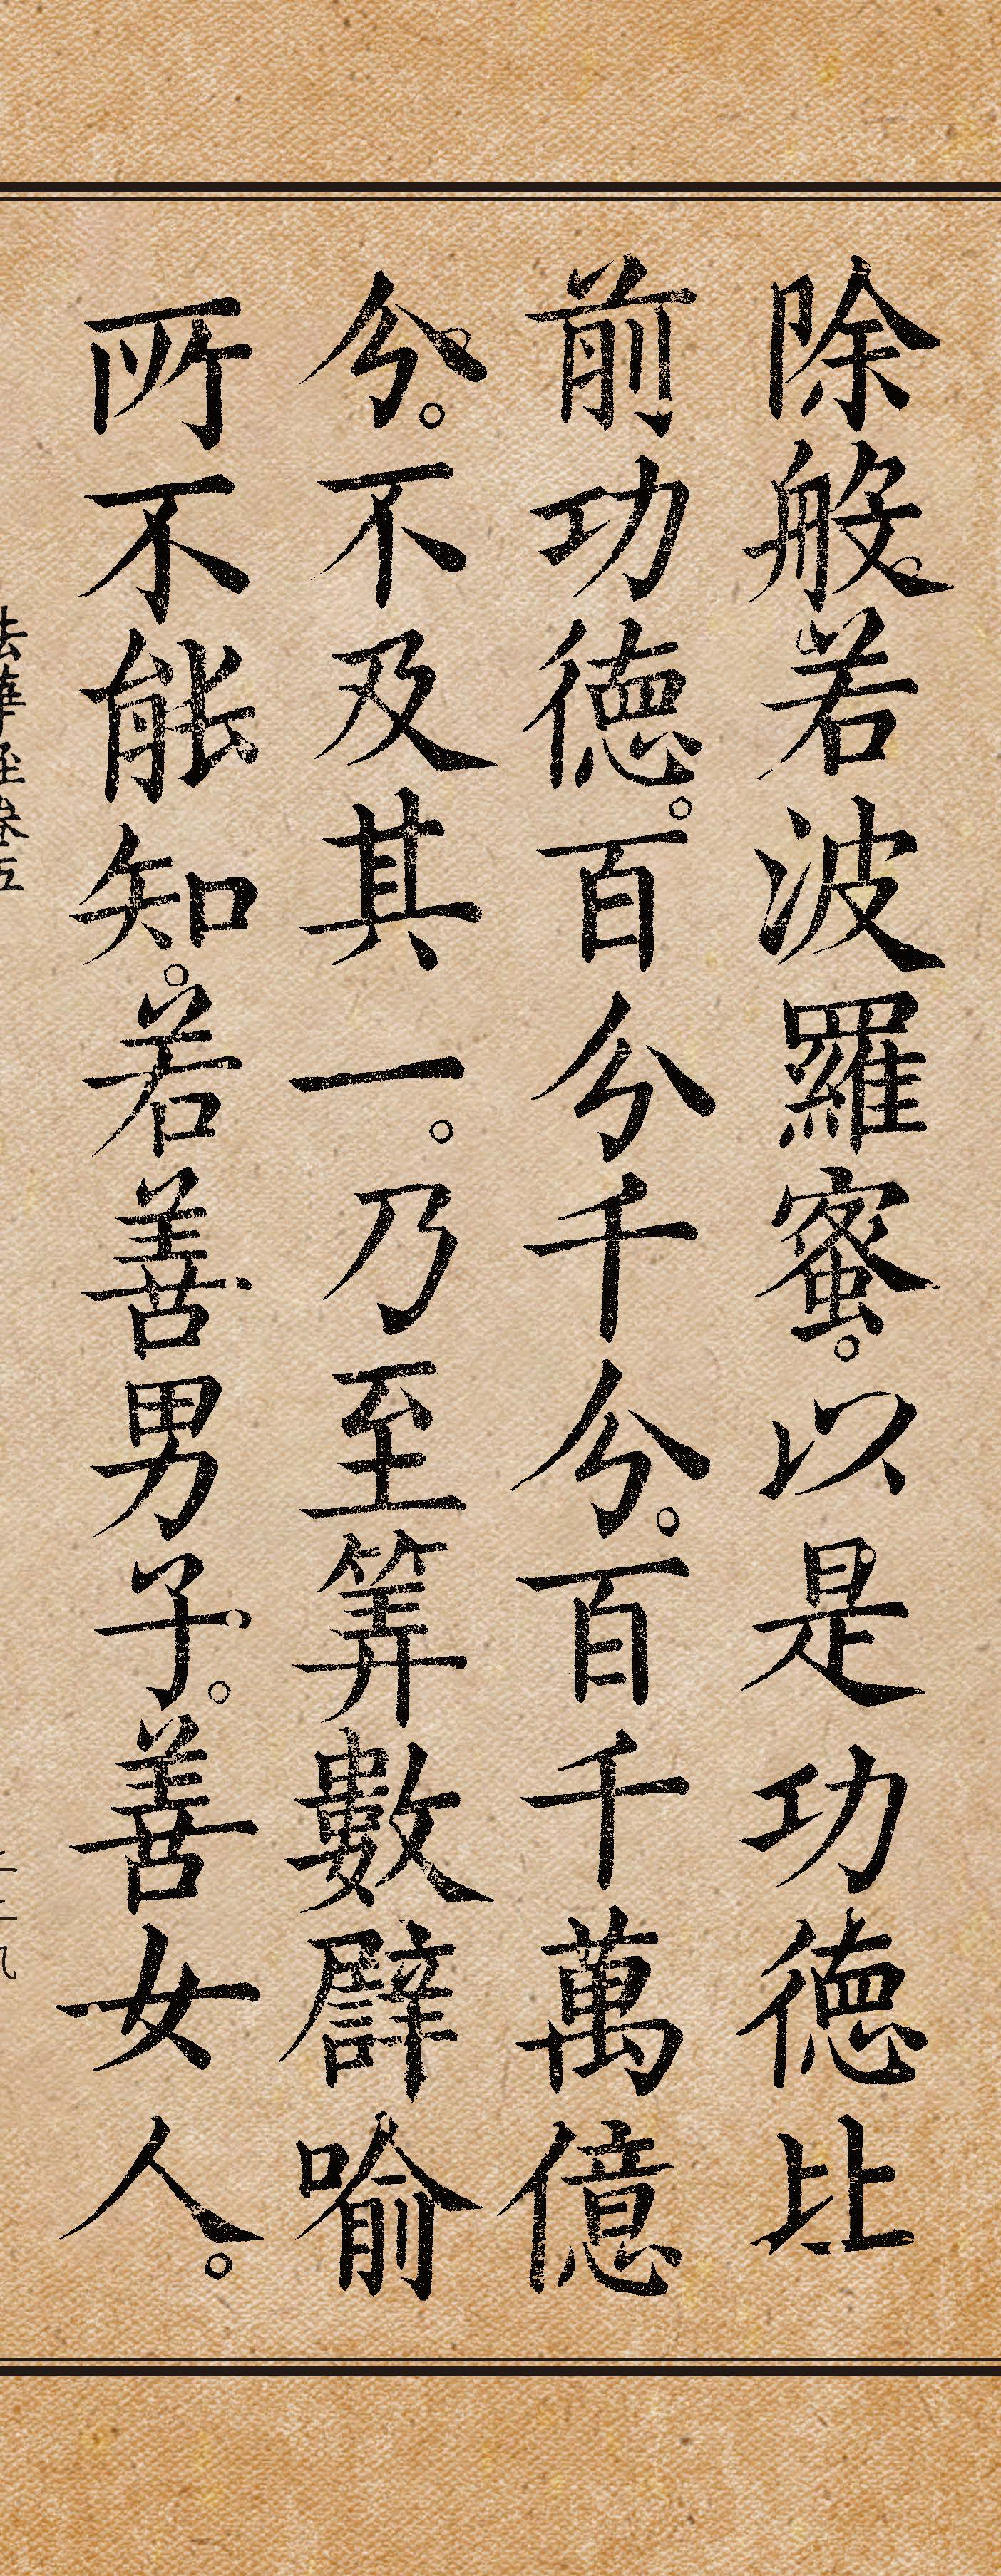 除般若波羅蜜。以是功德比
前功德。百分千分。百千萬億
分。不及其一。乃至筭數譬喻
所不能知。若善男子。善女人。
法華經卷五